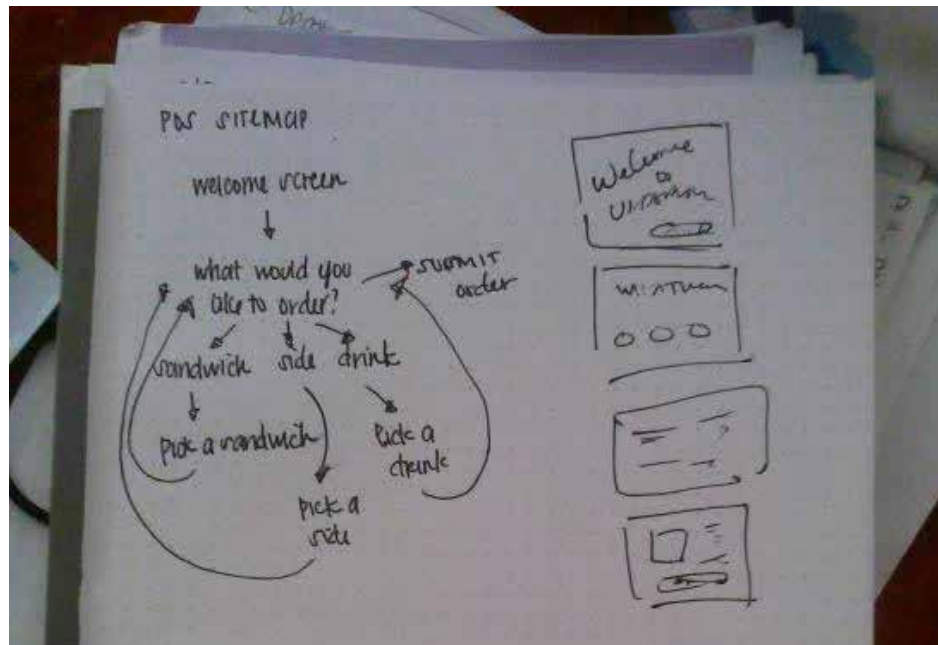 POS SITEMAP
welcome screen
what would you
like to order?
SUBMIT
order
sandwich side drink
pick a sandwich
pick a
drink
pick a
side
Welcome
to